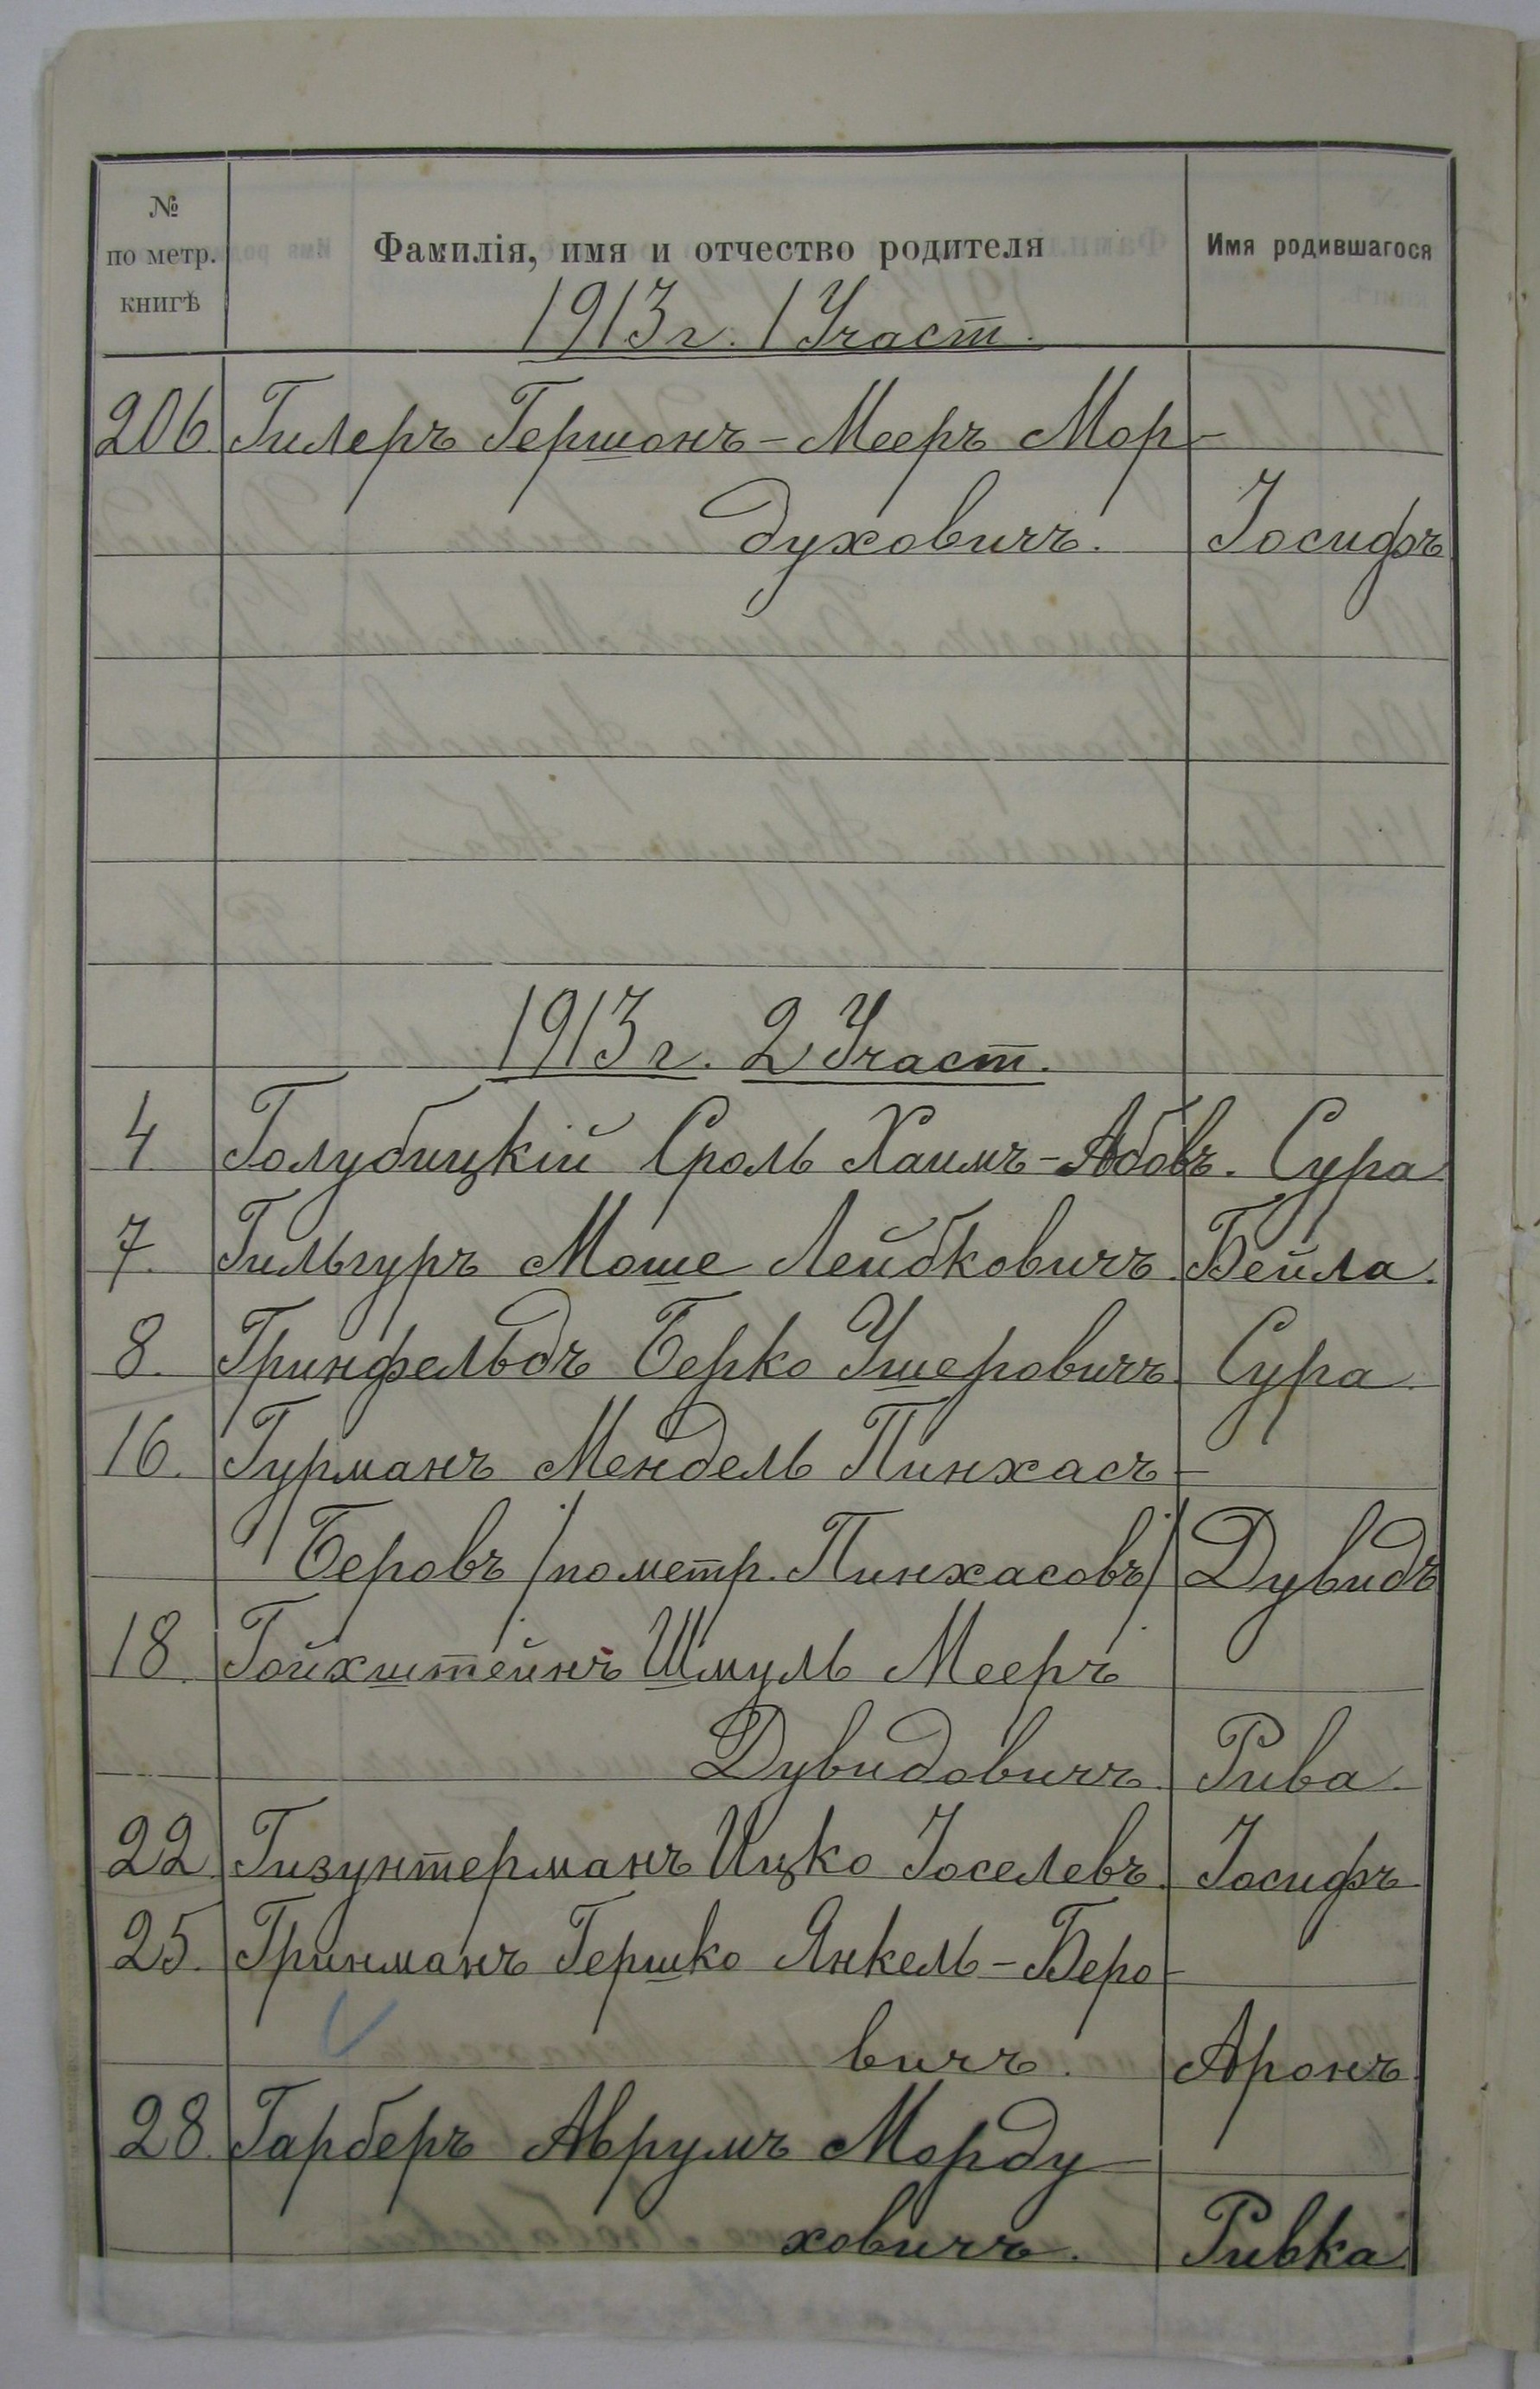 № по метр. книгѣ Фамилія, имя и отчество родителя Имя родившагося
1913 г. 1 Участ.
206. Гилеръ Гершонъ-Мееръ Мор-
духовичъ. Іосифъ
1913 г. 2 Участ.
4 Голубицкій Сроль Хаимъ-Абовъ. Сура
7. Гильгуръ Моше Лейбковичъ. Бейла.
8. Гринфельдъ Берко Ушеровичъ. Сура.
16. Гурманъ Мендель Пинхасъ-
Беровъ /по метр. Пинхасовъ/ Дувидъ
18. Гойхштейнъ Шмуль Мееръ
Дувидовичъ. Рива.
22. Гизунтерманъ Ицко Іоселевъ. Іосифъ.
25. Гринманъ Гершко Янкель-Беро-
вичъ. Аронъ.
28. Гарберъ Аврумъ Морду-
ховичъ. Ривка.